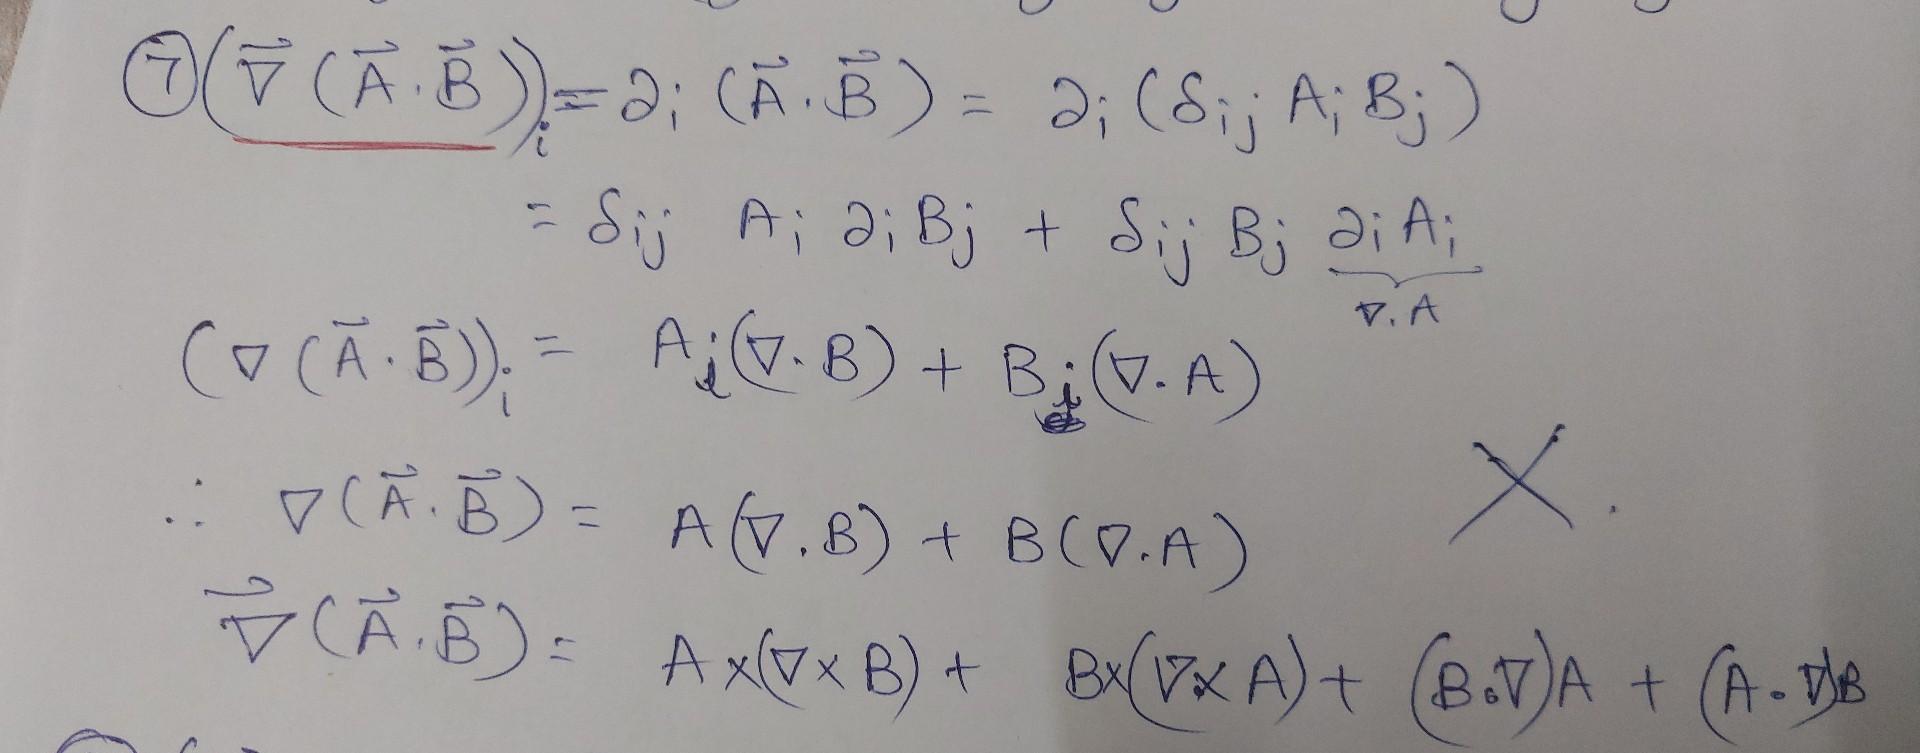 ⑦ (∇⃗ (A⃗ · B⃗))ᵢ = ∂ᵢ (A⃗ · B⃗) = ∂ᵢ (δᵢⱼ Aᵢ Bⱼ)
= δᵢⱼ Aᵢ ∂ᵢ Bⱼ + δᵢⱼ Bⱼ ∂ᵢ Aᵢ
∇.A
(∇ (A⃗ · B⃗))ᵢ = Aᵢ(∇. B) + Bᵢ(∇. A)
∴ ∇(A⃗ . B⃗) = A(∇. B) + B(∇. A) X.
∇⃗(A⃗ . B⃗) = A×(∇×B) + B×(∇×A) + (B·∇)A + (A·∇)B